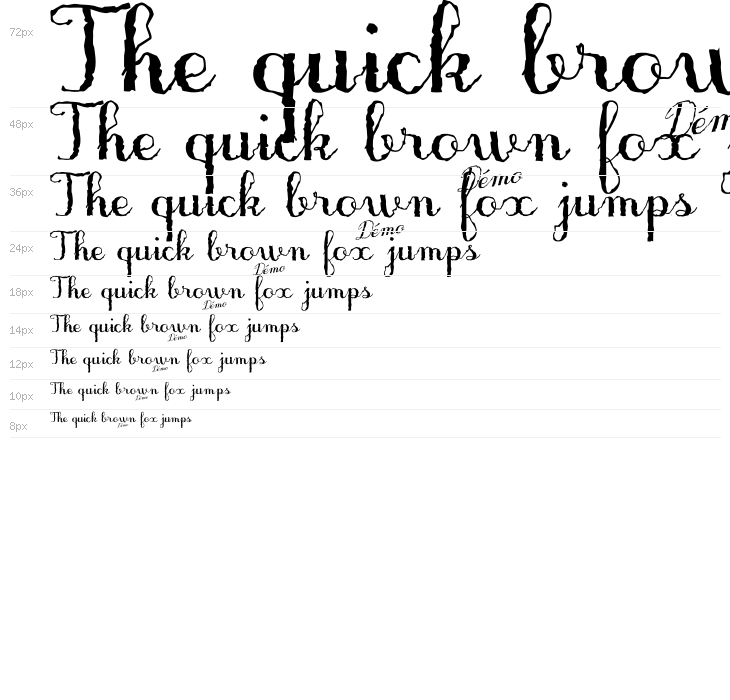 72px The quick brow
48px The quick brown fox
Démo
36px The quick brown fox jumps
Démo
24px The quick brown fox jumps
Démo
18px The quick brown fox jumps
Démo
14px The quick brown fox jumps
Démo
12px The quick brown fox jumps
Démo
10px The quick brown fox jumps
Démo
8px The quick brown fox jumps
Démo